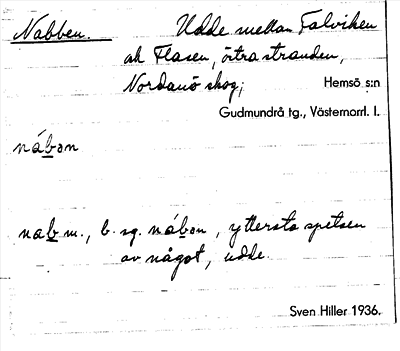 Nabben. Udde mellan Talviken
och Flasen, östra stranden,
Nordanö skog; Hemsö s:n
Gudmundrå tg., Västernorrl. l.
nábon
nab m., b. sg. nábon, yttersta spetsen
av något, udde.
Sven Hiller 1936.